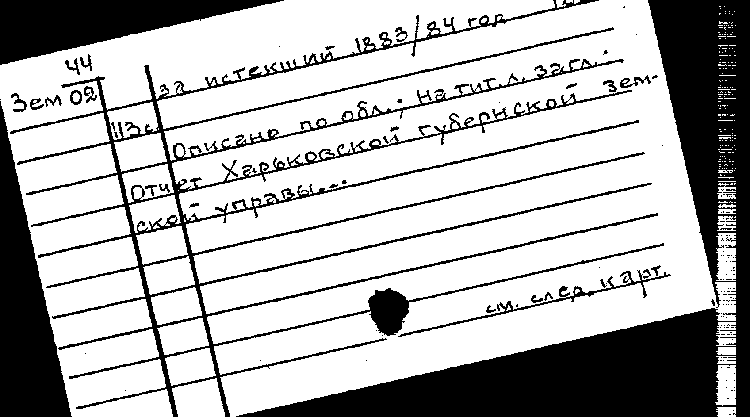 44
Зем 02
за истекший 1883/84 год
113с.
Описано по обл.; на тит.л. загл.:
Отчет Харьковской губернской зем-
ской управы...
см. след. карт.